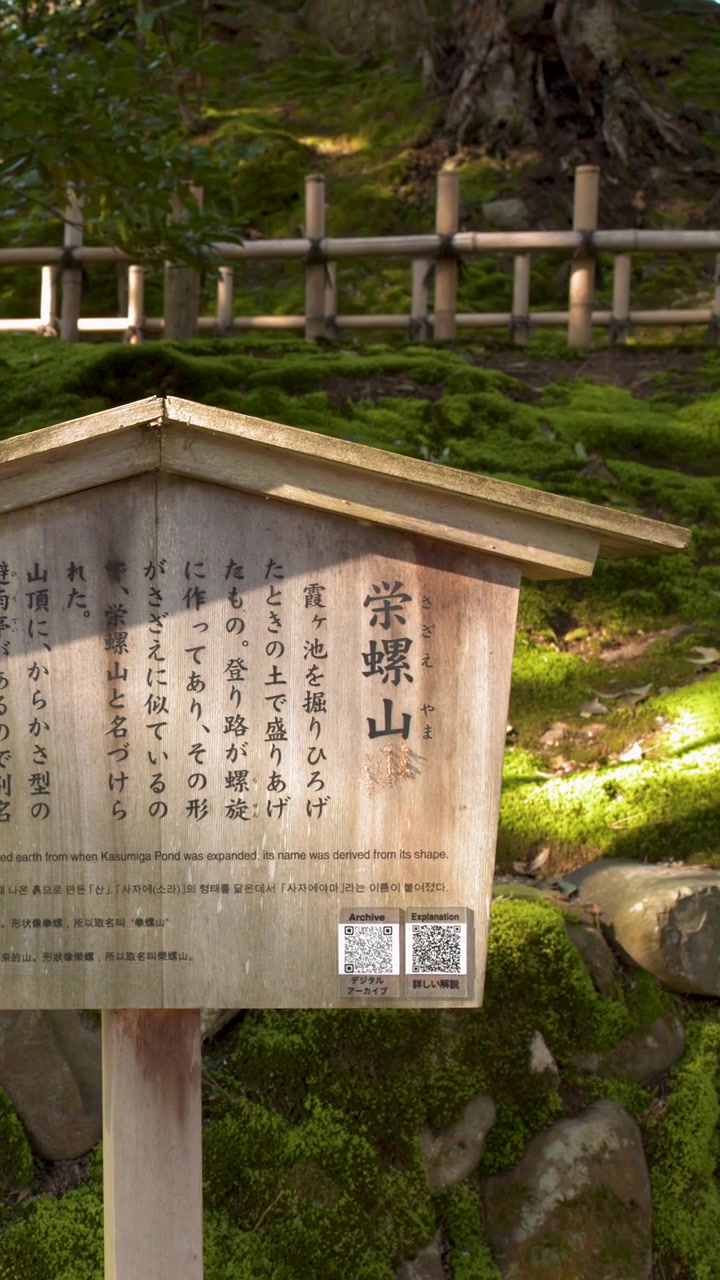 栄螺山
さざえ やま
霞ヶ池を掘りひろげ
たときの土で盛りあげ
たもの。登り路が螺旋
らせん
に作ってあり、その形
がさざえに似ているの
で、栄螺山と名づけら
れた。
山頂に、からかさ型の
避雨亭があるので別名
ed earth from when Kasumiga Pond was expanded, its name was derived from its shape.
나온 흙으로 만든「산」.「사자에(소라)」의 형태를 닮은데서「사자에야마」라는 이름이 붙여졌다.
。形状像拳螺，所以取名叫“拳螺山”
來的山。形狀像榮螺，所以取名叫榮螺山。
Archive
デジタル
アーカイブ
Explanation
詳しい解説